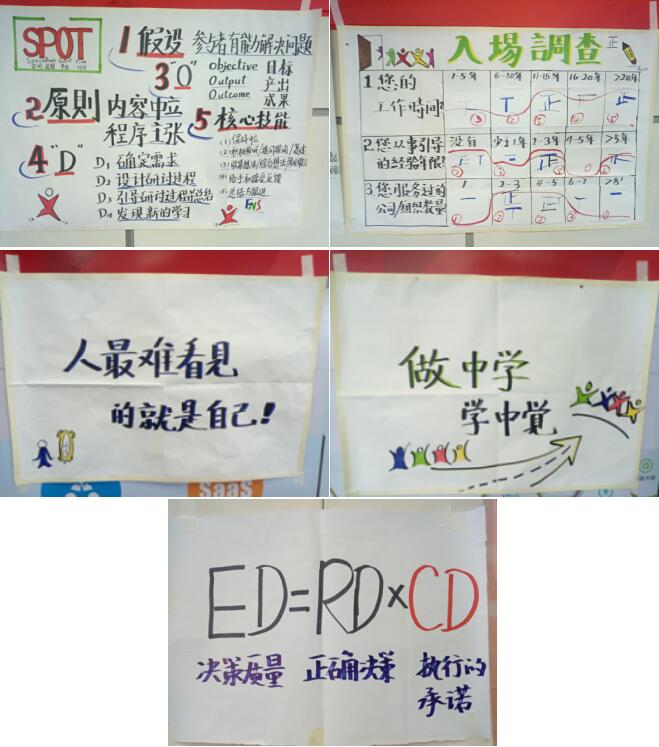 SPOT
1 假设 参与者有能力解决问题
3 "O" Objective 目标
Output 产出
Outcome 成果
2 原則 内容中立
程序主张
4 "D" D1 确定需求
D2 设计研讨过程
D3 引导研讨过程/总结
D4 发现新的学习
5 核心技能
(1) 保持中立
(4) 给予和接受反馈
(5) 总结与跟进
入場調查 正
1 您的工作时间? 1-5年 6-10年 11-15年 16-20年 >20年
2 您从事引导的经验年限? 没有 少于1年 2-3年 4-5年 >5年
3 您服务过的公司/组织数量 1 2-3 4-5 6-7 >8
人最难看見
的就是自己!
SaaS
做中学
学中覚
ED=RD×CD
决策质量 正确决策 执行的
承诺